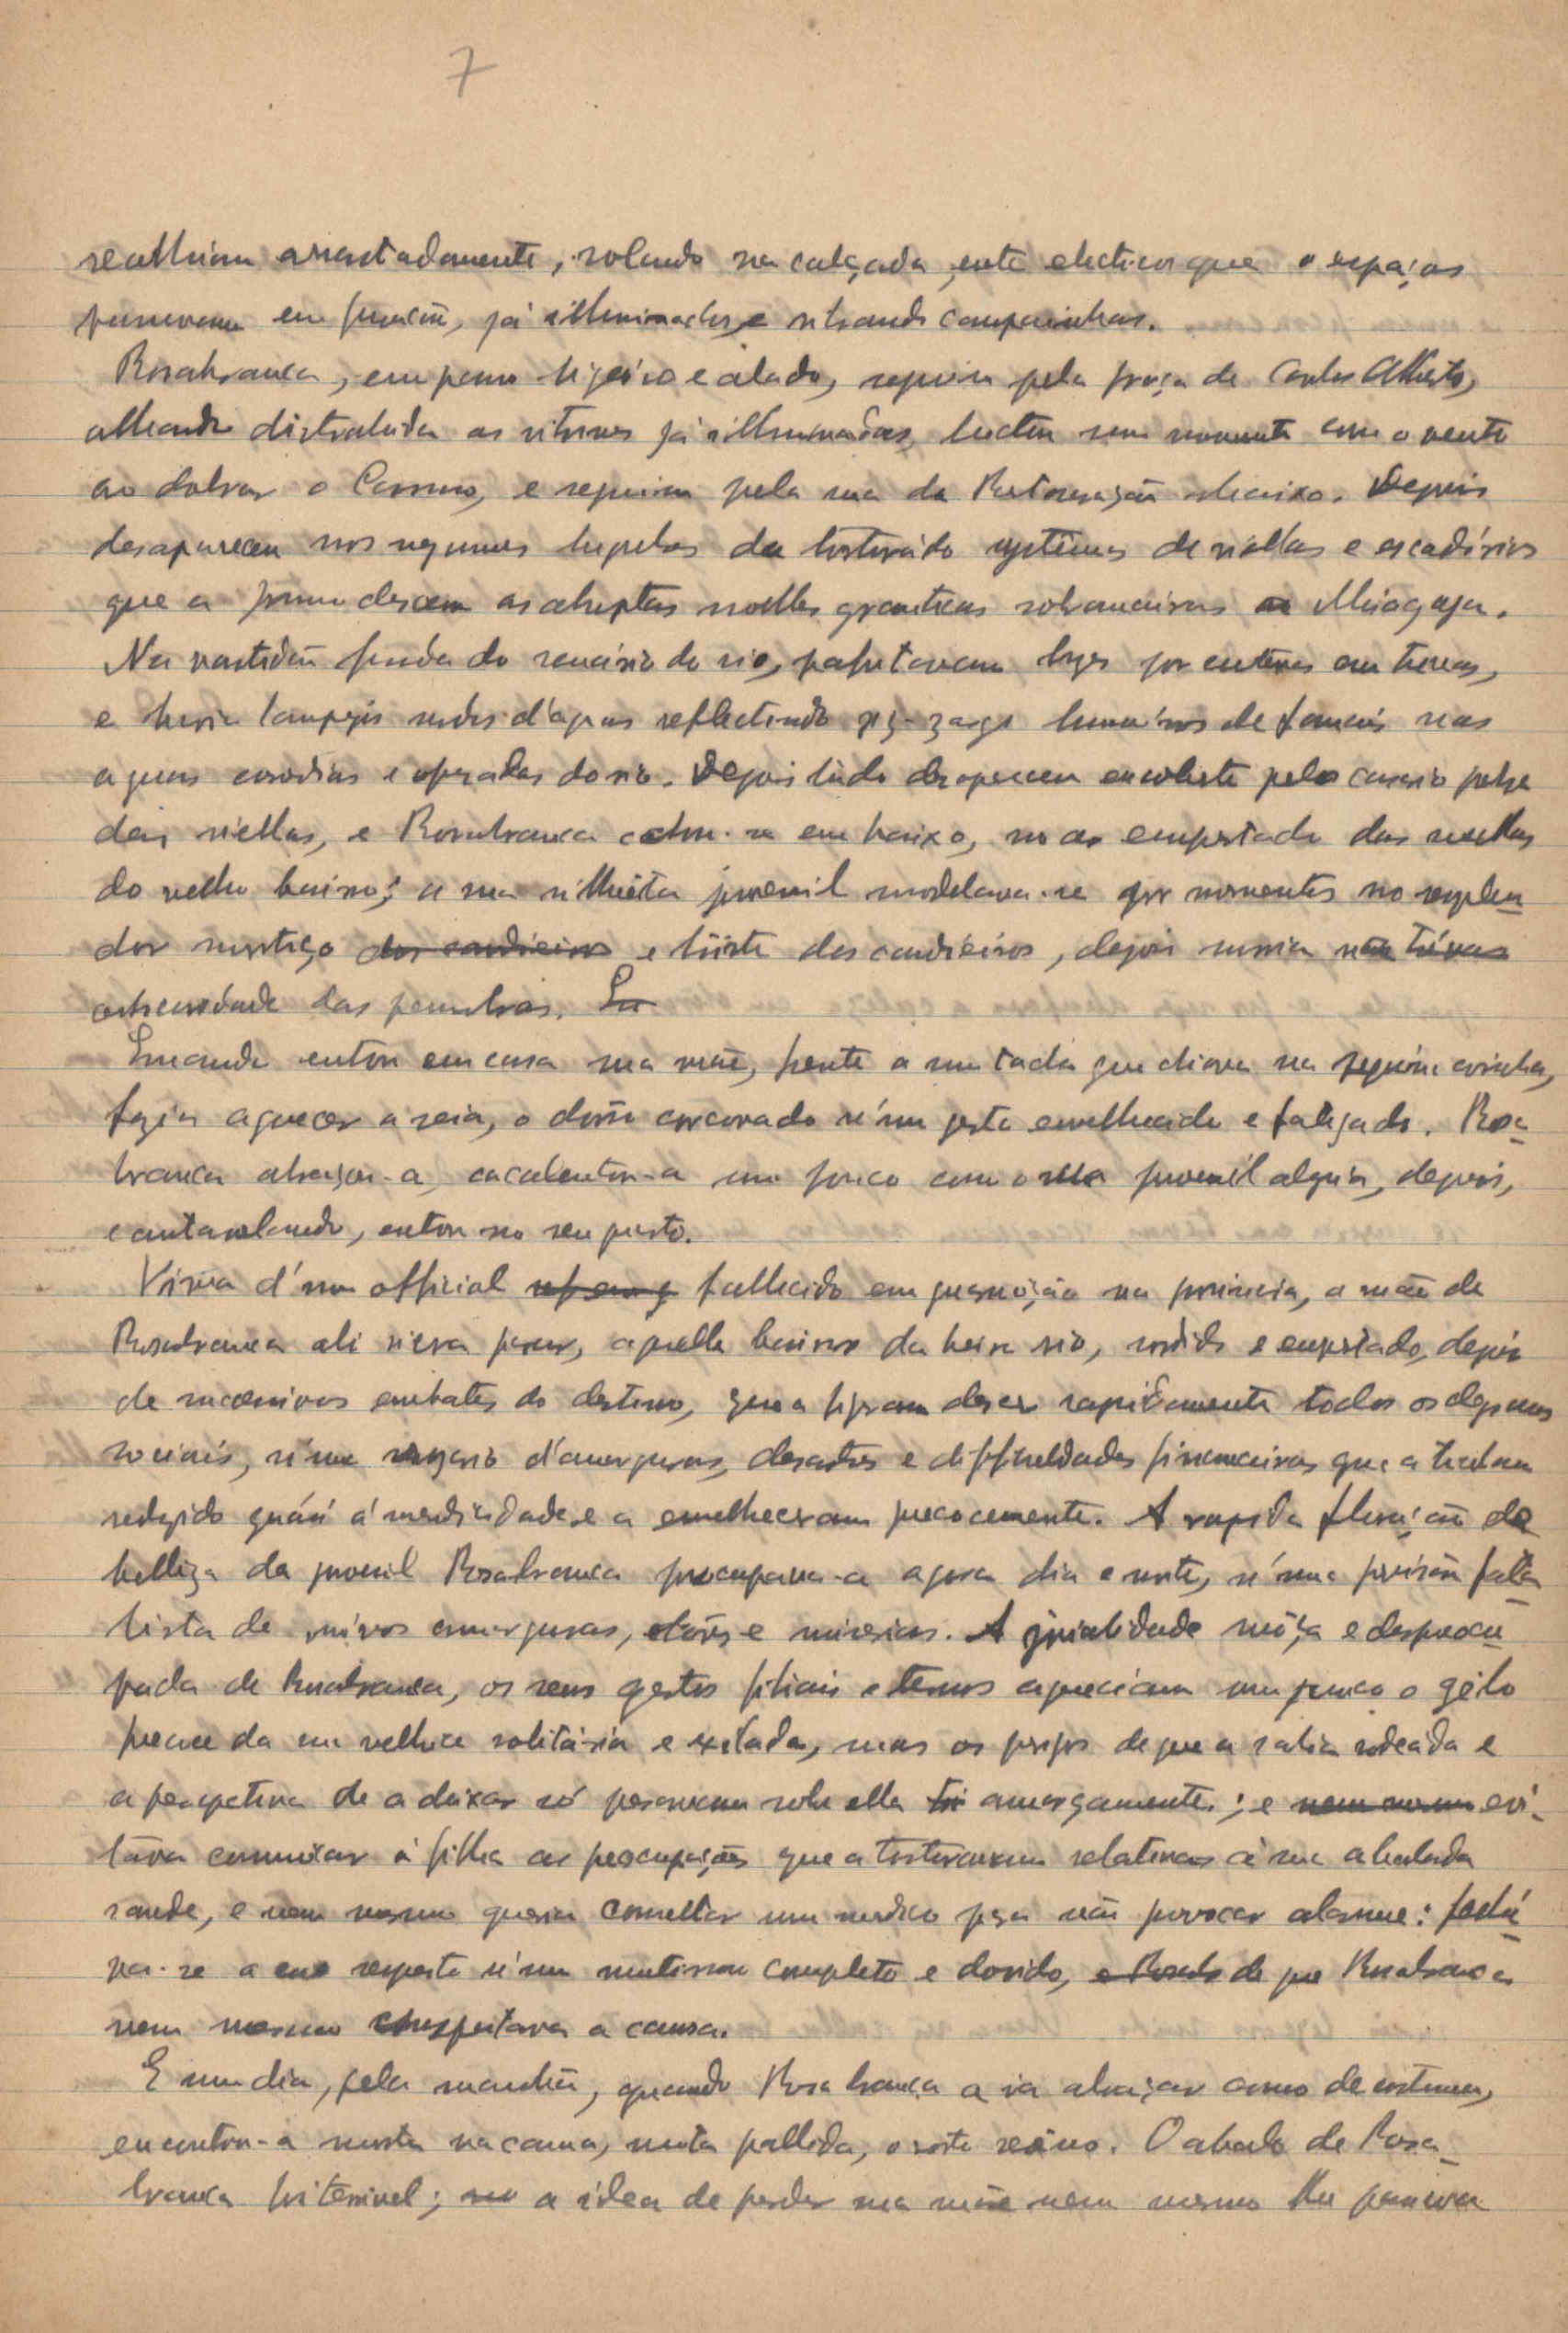 7
recolhiam arrastadamente, rolando na calçada, entre electricos que a espaços
passavam em funcção, já illuminados, e vibrando campainhas.
Rosabranca, em passo ligeiro e alado, seguiu pela praça de Carlos Alberto,
olhando distrahida as vitrines já illuminadas, luctou um momento com o vento
ao dobrar o Carmo, e seguiu pela rua da Restauração abaixo. Depois
desapareceu nos negrumes do torturado systema de viellas e escadórios
que a prumo descem as abruptas moles graniticas sobranceiras a Miragaya.
Na vastidão funda do scenário do rio, palpitavam luzes por entre as trevas,
e havia lampejos d'aguas reflectindo zig-zags luminosos de faroes nas
aguas e do rio. Depois tudo desapareceu encoberto pelo casario
das viellas, e Rosabranca achou-se em baixo, no ar empestado das viellas
do velho bairro; a sua silhueta juvenil modelava-se por momentos no resplen-
dor mortiço dos candieiros e triste dos candieiros, depois sumia na trévas
obscuridade das penumbras. En
Quando entrou em casa sua mãe, frente a um tacho que chiava na pequena cosinha,
fazia aquecer a ceia, o dorso corcovado n'um gesto envelhecido e fatigado. Rosa-
branca abraçou-a, acalentou-a um pouco com a sua juvenil alegria, depois,
cantarolando, entrou no seu quarto.
Viuva d'um official fallecido em guarnição na provincia, a mãe de
Rosabranca ali viera parar, aquelle bairro da beira rio, sordido e empestado, depois
de successivos embates do destino, que a fizeram descer rapidamente todos os degraus
sociais, n'um d'amarguras, desastres e difficuldades financeiras que a tinham
reduzido quási á mendicidade e a envelheceram precocemente. A rapida floração da
belleza da juvenil Rosabranca preocupava-a agora dia e noite, n'uma previsão fata-
lista de novas amarguras, dores e miserias. A jovialidade môça e despreocu-
pada de Rosabranca, os seus gestos filiais e ternos aqueciam um pouco o gêlo
precoce da sua velhice solitária e exilada, mas os perigos de que a sabia rodeada e
a perspetiva de a deixar só pesavam sobre ella amargamente; e nem mesmo evi-
tava comunicar á filha as preocupações que a torturavam relativas á sua abalada
saude, e nem mesmo queria consultar um medico para não provocar alarme: fechá-
va-se a esse respeito n'um mutismo completo e dorido, de que Rosabranca
nem mesmo suspeitava a causa.
E um dia, pela manhã, quando Rosabranca a ia abraçar como de costume,
encontrou-a morta na cama, muito pallida, o rosto sereno. O abalo de Rosa-
branca foi terrivel; a idea de perder sua mãe nem mesmo lhe passára